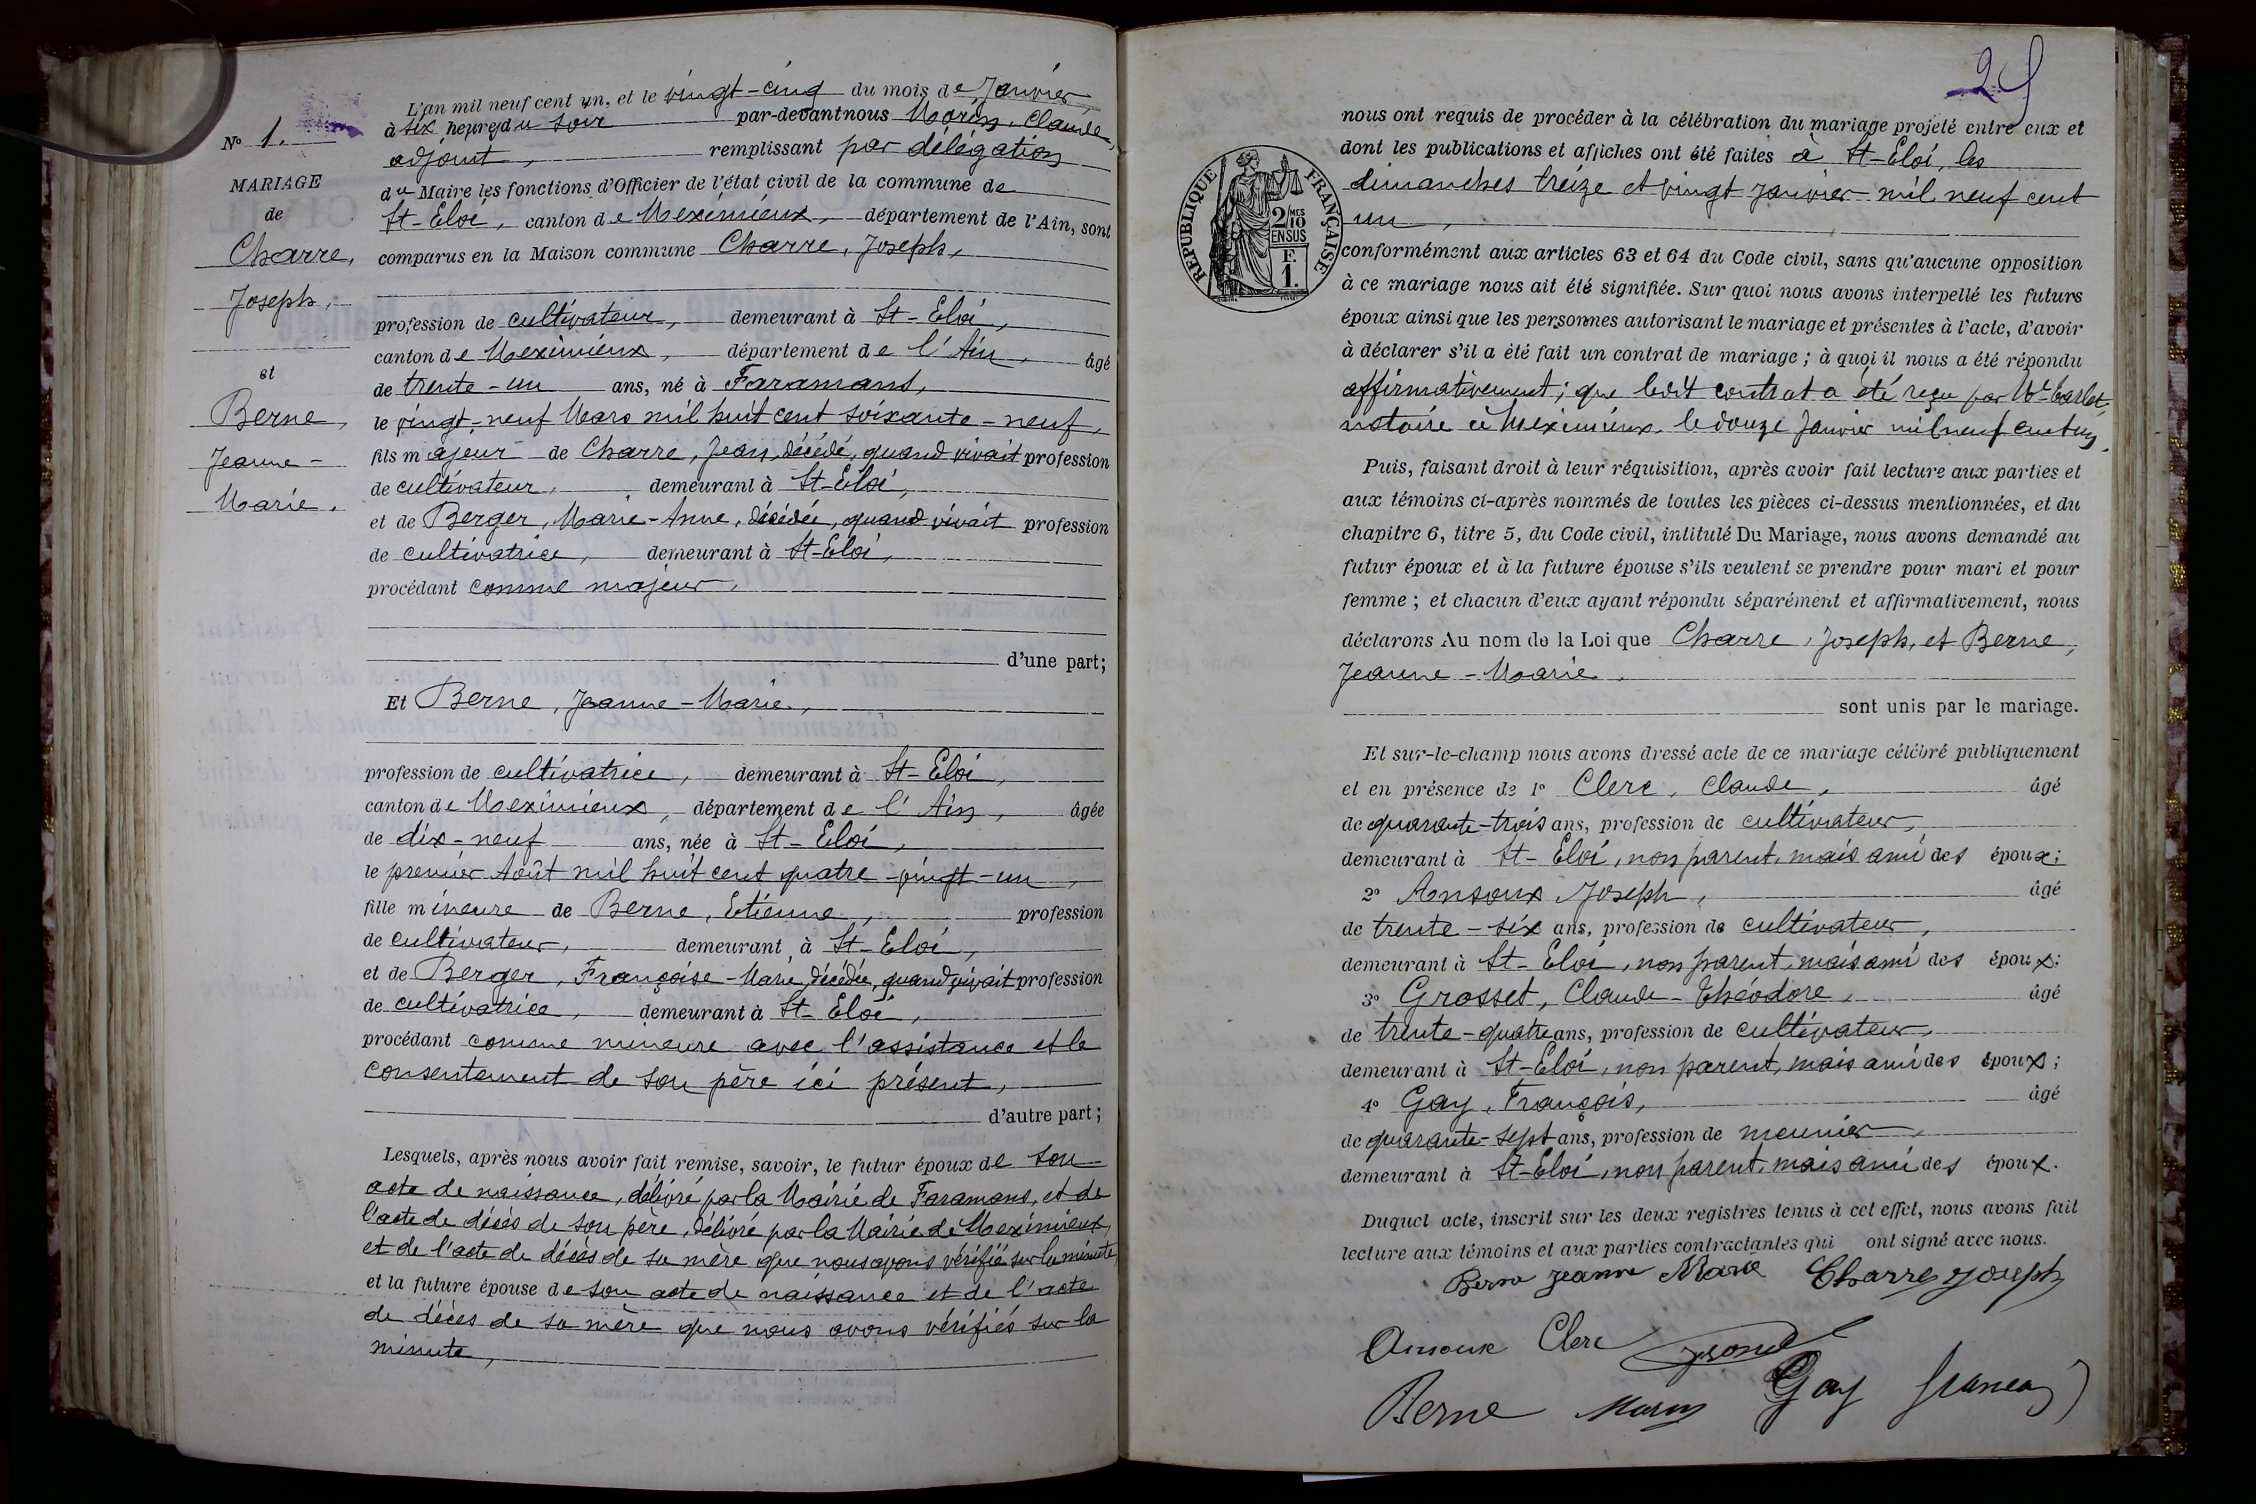 N° 1.
MARIAGE
de
Charre,
Joseph,
et
Berne,
Jeanne-
Marie.
L'an mil neuf cent un, et le vingt-cinq du mois de Janvier,
à six heures du soir par-devant nous Morin, Claude,
adjoint, remplissant par délégation
du Maire les fonctions d'Officier de l'état civil de la commune de
St-Eloi, canton de Meximieux, département de l'Ain, sont
comparus en la Maison commune Charre, Joseph,
profession de cultivateur, demeurant à St-Eloi,
canton de Meximieux, département de l'Ain, âgé
de trente-un ans, né à Faramans,
le vingt-neuf Mars mil huit cent soixante-neuf,
fils majeur de Charre, Jean, décédé, quand vivait profession
de cultivateur, demeurant à St-Eloi,
et de Berger, Marie-Anne, décédée, quand vivait profession
de cultivatrice, demeurant à St-Eloi,
procédant comme majeur,
d'une part;
Et Berne, Jeanne-Marie,
profession de cultivatrice, demeurant à St-Eloi,
canton de Meximieux, département de l'Ain, âgée
de dix-neuf ans, née à St-Eloi,
le premier Août mil huit cent quatre-vingt-un,
fille mineure de Berne, Etienne, profession
de cultivateur, demeurant à St-Eloi,
et de Berger, Françoise-Marie, décédée, quand vivait profession
de cultivatrice, demeurant à St-Eloi,
procédant comme mineure avec l'assistance et le
consentement de son père ici présent,
d'autre part;
Lesquels, après nous avoir fait remise, savoir, le futur époux de son
acte de naissance, délivré par la Mairie de Faramans, et de
l'acte de décès de son père, délivré par la Mairie de Meximieux,
et de l'acte de décès de sa mère que nous avons vérifié sur la minute,
et la future épouse de son acte de naissance et de l'acte
de décès de sa mère que nous avons vérifiés sur la
minute,
29
RÉPUBLIQUE FRANÇAISE
2/10 MES
EN SUS
F.
1.
nous ont requis de procéder à la célébration du mariage projeté entre eux et
dont les publications et affiches ont été faites à St-Eloi, les
dimanches treize et vingt janvier mil neuf cent
un,
conformément aux articles 63 et 64 du Code civil, sans qu'aucune opposition
à ce mariage nous ait été signifiée. Sur quoi nous avons interpellé les futurs
époux ainsi que les personnes autorisant le mariage et présentes à l'acte, d'avoir
à déclarer s'il a été fait un contrat de mariage; à quoi il nous a été répondu
affirmativement; que ledit contrat a été reçu par Me
notaire à Meximieux, le douze Janvier mil neuf cent un.
Puis, faisant droit à leur réquisition, après avoir fait lecture aux parties et
aux témoins ci-après nommés de toutes les pièces ci-dessus mentionnées, et du
chapitre 6, titre 5, du Code civil, intitulé Du Mariage, nous avons demandé au
futur époux et à la future épouse s'ils veulent se prendre pour mari et pour
femme; et chacun d'eux ayant répondu séparément et affirmativement, nous
déclarons Au nom de la Loi que Charre, Joseph, et Berne,
Jeanne-Marie
sont unis par le mariage.
Et sur-le-champ nous avons dressé acte de ce mariage célébré publiquement
et en présence de 1° Clerc, Claude, âgé
de quarante-trois ans, profession de cultivateur,
demeurant à St-Eloi, non parent, mais ami des époux;
2° Ansoux Joseph, âgé
de trente-six ans, profession de cultivateur,
demeurant à St-Eloi, non parent, mais ami des époux;
3° Grosset, Claude-Théodore, âgé
de trente-quatre ans, profession de cultivateur,
demeurant à St-Eloi, non parent, mais ami des époux;
4° Gay, François, âgé
de quarante-sept ans, profession de meunier,
demeurant à St-Eloi, non parent, mais ami des époux.
Duquel acte, inscrit sur les deux registres tenus à cet effet, nous avons fait
lecture aux témoins et aux parties contractantes qui ont signé avec nous.
Berne Jeanne Marie Charre Joseph
Clerc
Berne Morin Gay